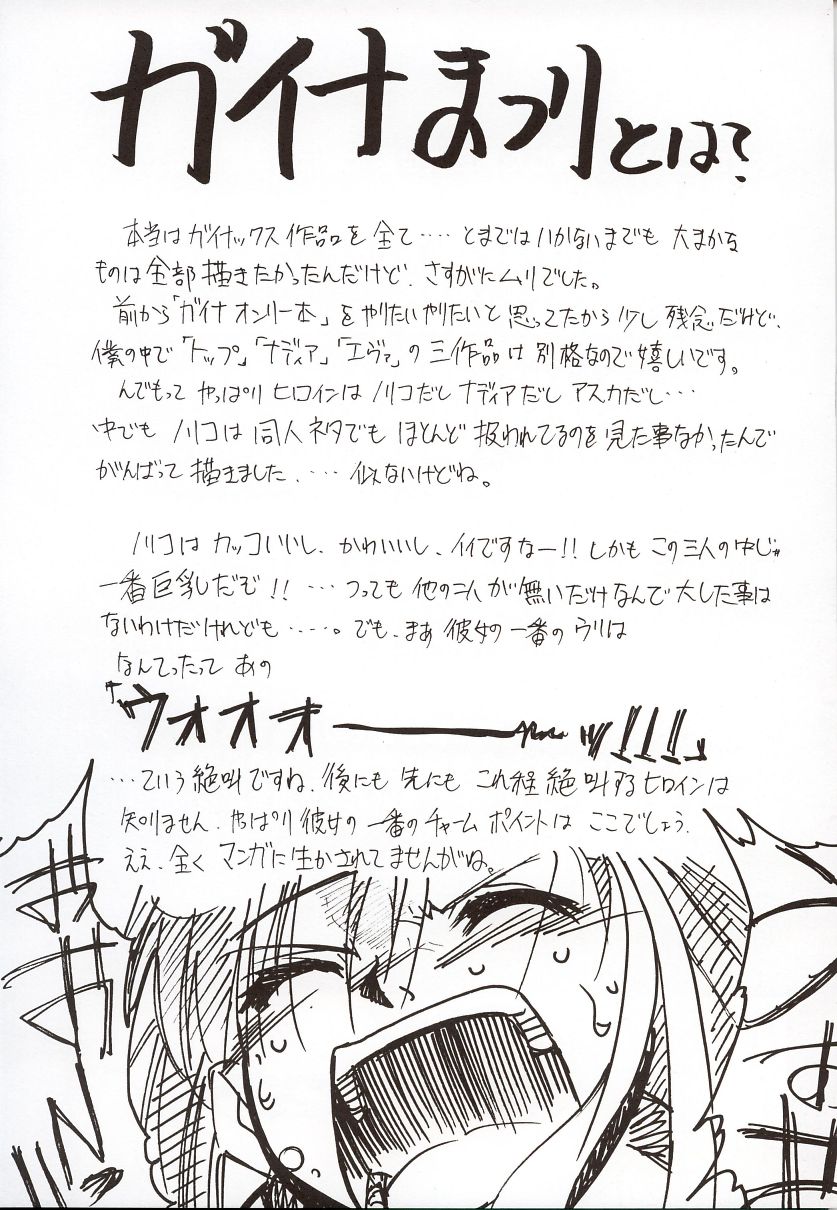 ガイナまつりとは?
本当はガイナックス作品を全て‥‥とまではいかないまでも大まかな
ものは全部描きたかったんだけど、さすがにムリでした。
前から「ガイナオンリー本」をやりたいやりたいと思ってたから少し残念だけど、
僕の中で「トップ」「ナディア」「エヴァ」の三作品は別格なので嬉しいです。
んでもってやっぱりヒロインはノリコだしナディアだしアスカだし‥‥
中でもノリコは同人ネタでもほとんど扱われてるのを見た事なかったんで
がんばって描きました。‥‥似ないけどね。
ノリコはカッコいいし、かわいいし、イイですなー!!しかもこの三人の中じゃ
一番巨乳だぞ!!‥‥つっても他の二人が無いだけなんで大した事は
ないわけだけれども‥‥‥。でも、まあ彼女の一番のウリは
なんてったってあの
「ウォオオ――――ッ!!!」
‥‥ていう絶叫ですね、後にも先にもこれ程絶叫するヒロインは
知りません、やっぱり彼女の一番のチャームポイントはここでしょう。
ええ、全くマンガに生かされてませんがね。